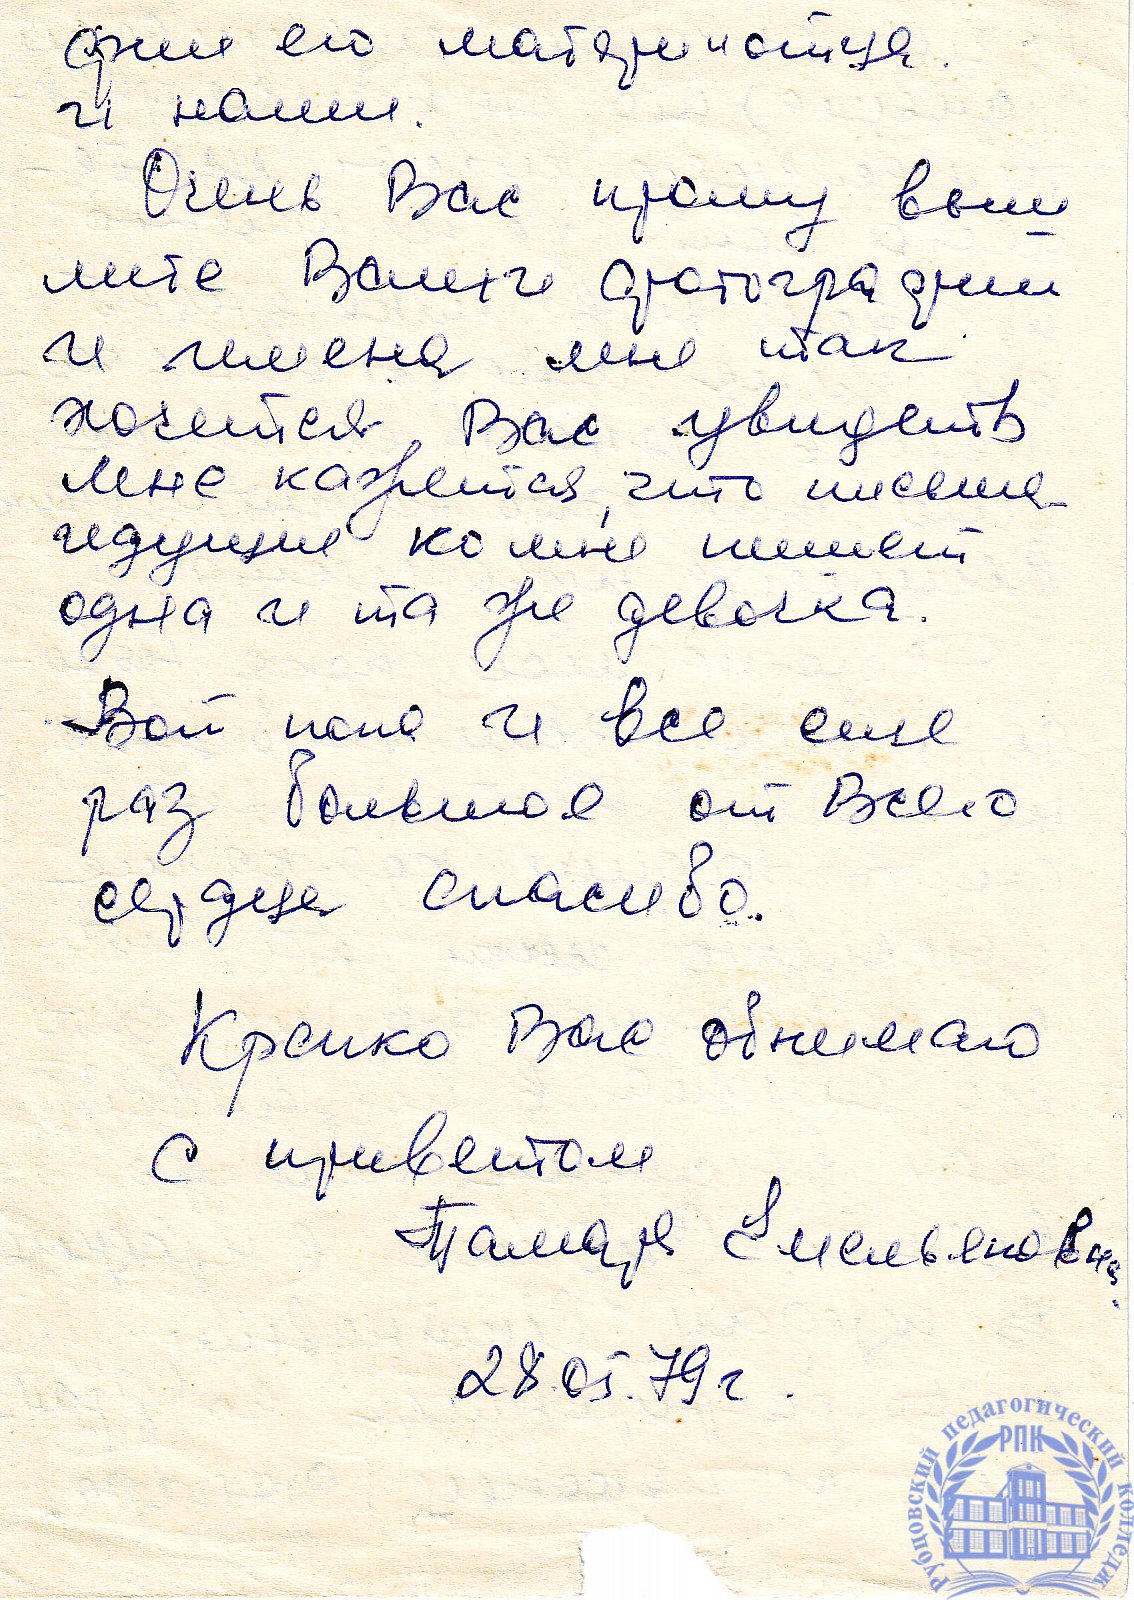 фии его матери и отца.
и наши.
Очень Вас прошу выш
лите Ваши фотографии
и имена мне так
хочится Вас увидеть
мне кажется, что письма
идущие ко мне пишет
одна и та же девочка.
Вот пока и все еще
раз большое от Всего
сердца спасибо.
Крепко Вас обнимаю
с приветом
Тамара Емельяновна.
28.05.79 г.
Рубцовский педагогический колледж
РПК